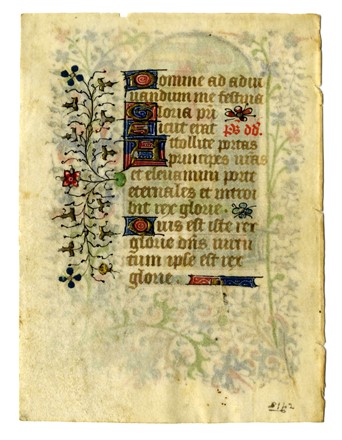 Domine ad adiu
uandum me festina
Gloria pri
Sicut erat ps dd.
Attollite portas
principes uras
et eleuamini porte
eternales et introi
bit rex glorie
Quis est iste rex
glorie dn̄s uirtu
tum ipse est rex
glorie.